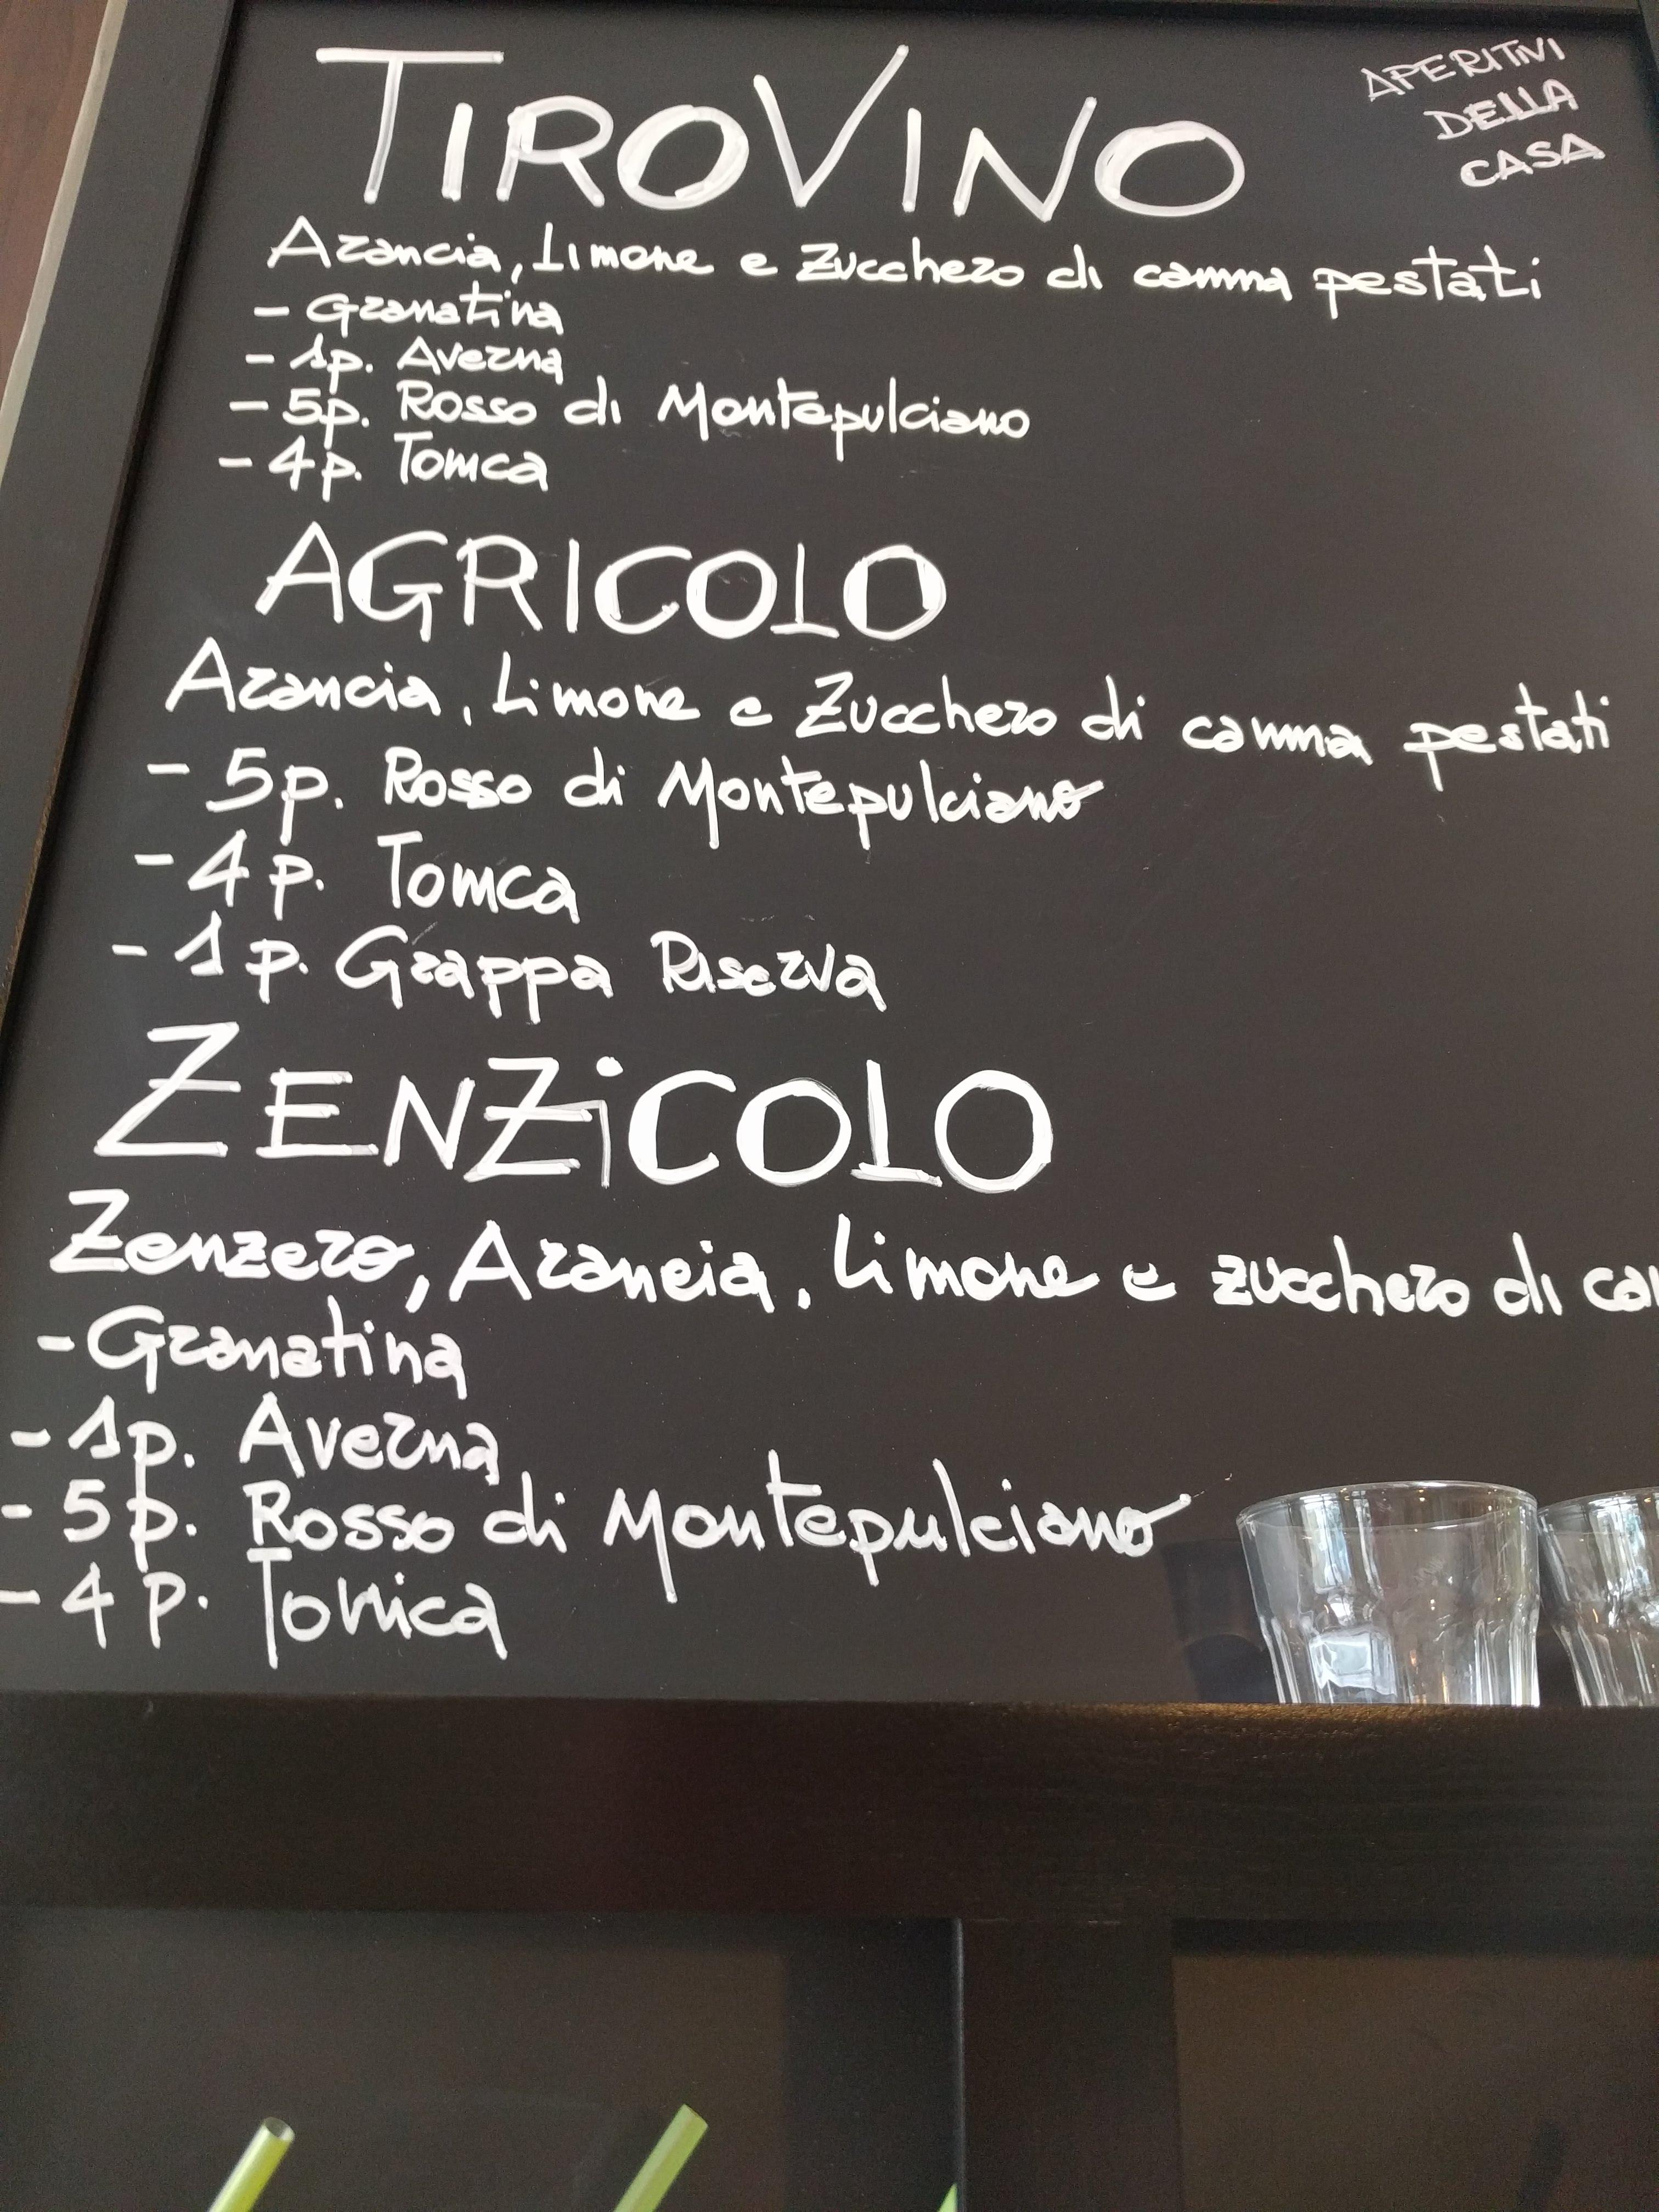 TIROVINO
APERITIVI
DELLA
CASA
Arancia, Limone e Zucchero di canna pestati
- Granatina
- 1p. Averna
- 5p. Rosso di Montepulciano
- 4p. Tonica
AGRICOLO
Arancia, Limone e Zucchero di canna pestati
- 5p. Rosso di Montepulciano
- 4p. Tonica
- 1p. Grappa Riserva
ZENZiCOLO
Zenzero, Arancia, Limone e zucchero di can
- Granatina
- 1p. Averna
- 5p. Rosso di Montepulciano
- 4p. Tonica